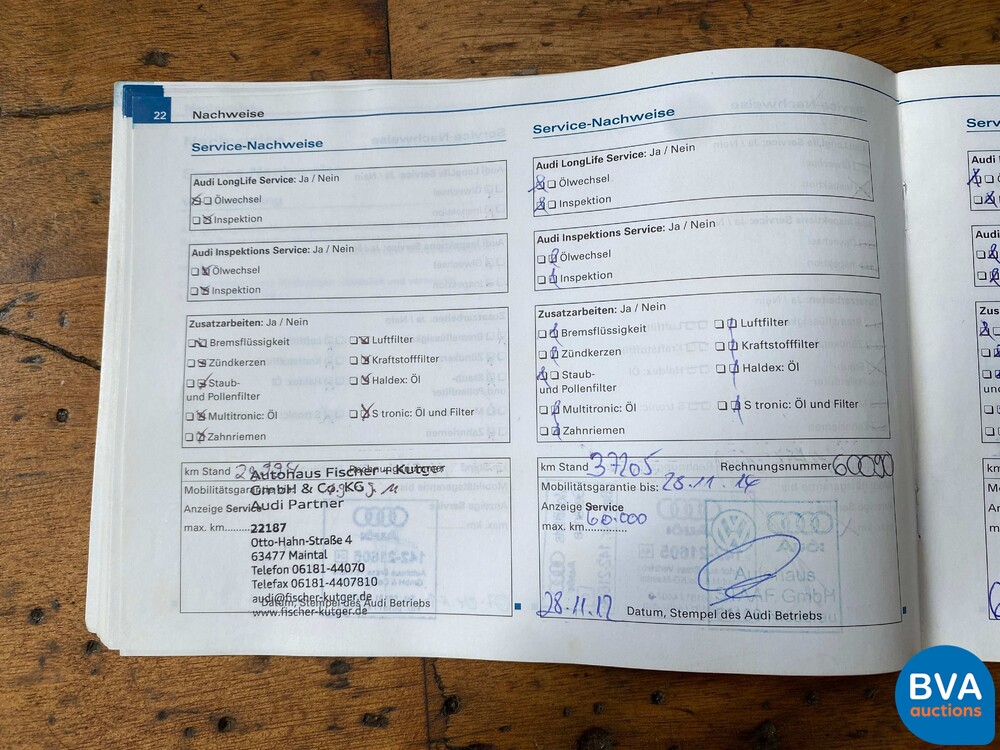 22 Nachweise
Service-Nachweise
Audi LongLife Service: Ja / Nein
Ölwechsel
Inspektion
Audi Inspektions Service: Ja / Nein
Ölwechsel
Inspektion
Zusatzarbeiten: Ja / Nein
Bremsflüssigkeit
Luftfilter
Zündkerzen
Kraftstofffilter
Staub-
und Pollenfilter
Haldex: Öl
Multitronic: Öl
S tronic: Öl und Filter
Zahnriemen
km Stand
Autohaus Fischer + Kutger
GmbH & Co. KG
Anzeige Service
Audi Partner
max. km
22187
Otto-Hahn-Straße 4
63477 Maintal
Telefon 06181-44070
Telefax 06181-4407810
audi@fischer-kutger.de
Datum, Stempel des Audi Betriebs
www.fischer-kutger.de
Service-Nachweise
Audi LongLife Service: Ja / Nein
Ölwechsel
Inspektion
Audi Inspektions Service: Ja / Nein
Ölwechsel
Inspektion
Zusatzarbeiten: Ja / Nein
Bremsflüssigkeit
Luftfilter
Zündkerzen
Kraftstofffilter
Staub-
und Pollenfilter
Haldex: Öl
Multitronic: Öl
S tronic: Öl und Filter
Zahnriemen
km Stand 37205 Rechnungsnummer 60090
Mobilitätsgarantie bis: 28.11.14
Anzeige Service
max. km 60.000
Autohaus
GmbH
28.11.12 Datum, Stempel des Audi Betriebs
BVA
auctions